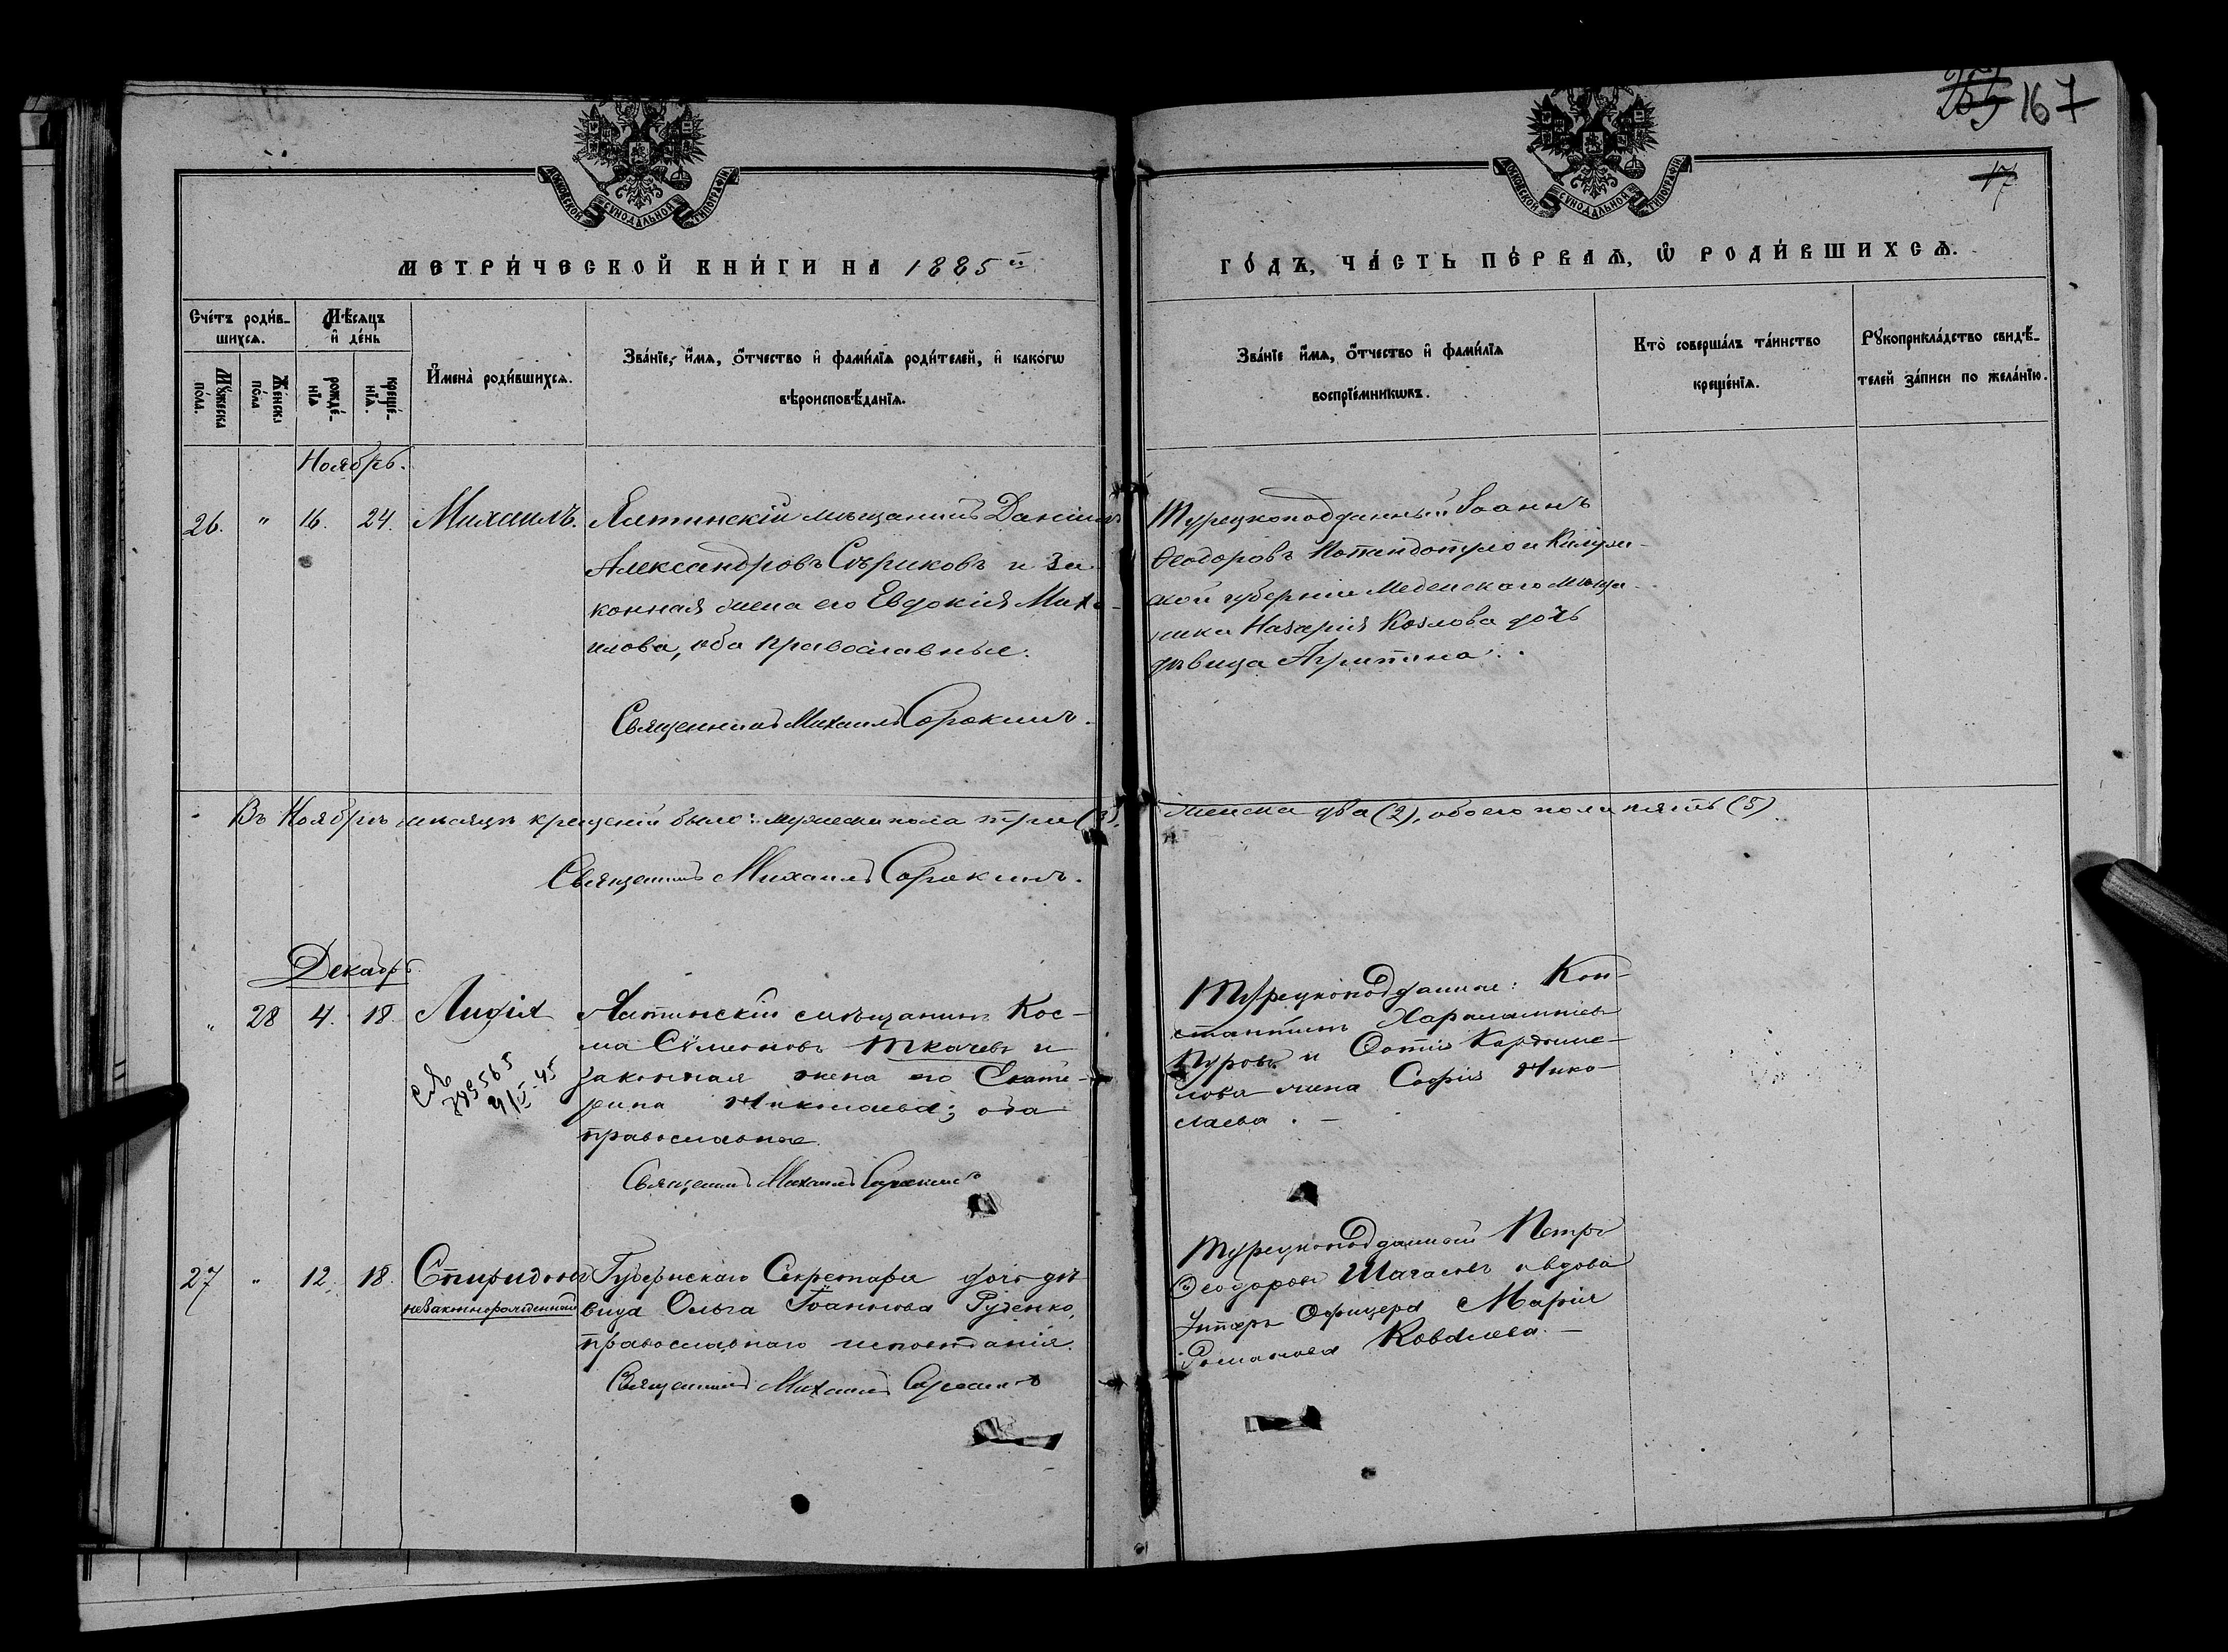 265 167
17
МОСКОВСКОЙ СѴНОДАЛЬНОЙ ТИПОГРАФІИ
МОСКОВСКОЙ СѴНОДАЛЬНОЙ ТИПОГРАФІИ
МЕТРИ́ЧЕСКОЙ КНИ́ГИ НА 1885
ГО́ДЪ, ЧА́СТЬ ПЕ́РВАѦ, Ѡ҆ РОДИ́ВШИХСѦ.
Сче́тъ роди́в-
шихсѧ.
Мѣ́сѧцъ
и҆ де́нь
Мꙋ́жеска
по́ла.
Же́нска
по́ла
рожде́-
нїѧ
креще́-
нїѧ.
И҆мена̀ роди́вшихсѧ.
Зва́нїе, и҆́мѧ, ѻ҆́тчество и҆ фами́лїѧ роди́телей, и҆ како́гѡ
вѣроисповѣ́данїѧ.
Зва́нїе и҆́мѧ, ѻ҆́тчество и҆ фами́лїѧ
воспрїе́мникѡвъ.
Кто̀ соверша́лъ та́инство
креще́нїѧ.
Рꙋкоприкла́дство свидѣ́-
телей за́писи по жела́нїю.
Ноябрь.
26. " 16. 24. Михаилъ. Ялтинскій мѣщанинъ Даніилъ
Александровъ Сѣриковъ и за-
конная жена его Евдокія Миха-
илова, оба православные.
Священникъ Михаилъ Сорокинъ.
Турецкоподданный Іоаннъ
Ѳеодоровъ Попандопуло и Калуж-
ской губерніи Медынскаго мѣща-
нина Назарія Козлова дочь
дѣвица Агрипина.
Въ Ноябрѣ мѣсяцѣ крещеній было: мужеска пола три (3),
женска два (2), обоего пола пять (5).
Священникъ Михаилъ Сорокинъ.
Декабрь
" 28 4. 18. Лидія
Ялтинскій мѣщанинъ Кос-
ма Сѵмеоновъ Ткачевъ и
законная жена его Екате-
рина Николаева; оба
православные.
Священникъ Михаилъ Сорокинъ
785565
Турецкоподданные: Кон-
стантинъ Харалампіевъ
и Софія Нико-
лаева. —
27 " 12. 18. Спиридонъ
незаконнорожденный
Губернскаго Секретаря дочь дѣ-
вица Ольга Іоаннова Руденко,
православнаго исповѣданія.
Священникъ Михаилъ Сорокинъ
Турецкоподданный Петръ
Ѳеодоровъ и вдова
Унтеръ Офицера Марія
Романова Ковалева. —